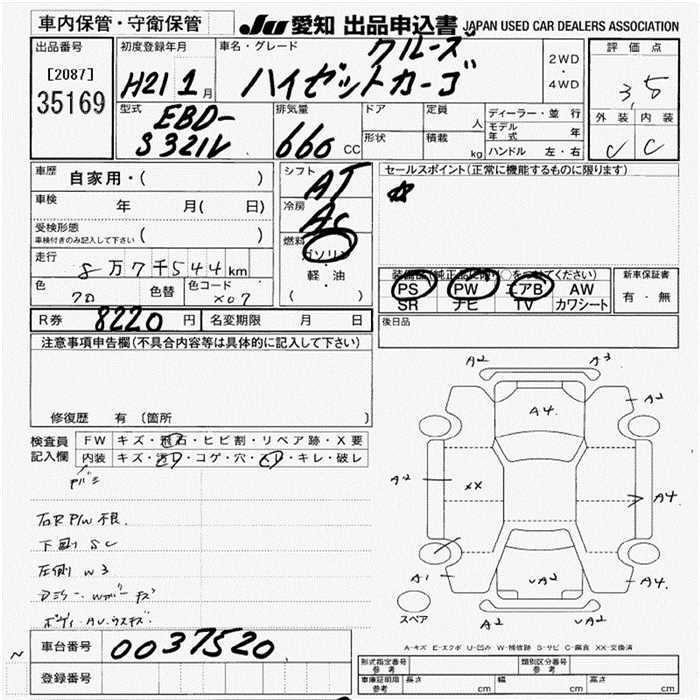 車内保管・守衛保管
JU 愛知 出品申込書 JAPAN USED CAR DEALERS ASSOCIATION
出品番号
[2087]
35169
初度登録年月
H21 1月
車名・グレード
クルーズ
ハイゼットカーゴ
2WD
・
4WD
評価点
3.5
外装 内装
C C
型式
EBD-
S321V
排気量
660 CC
ドア
定員 人
形状
積載 kg
ディーラー・並行
モデル年式 年
ハンドル 左・右
車歴 自家用・( )
車検 年 月( 日)
受検形態
車検付きのみ記入して下さい ( )
走行 8万7千544km
色 クロ 色替 色コード X07
シフト AT
冷房 AC
燃料 ガソリン
・
軽・油
( )
セールスポイント(正常に機能するものに限ります)
装備品(純正品に限り○をつけてください)
PS PW エアB AW
SR ナビ TV カワシート
新車保証書
有・無
R券 8220円 名変期限 月 日
後日品
注意事項申告欄(不具合内容等は具体的に記入して下さい)
修復歴 有 (箇所 )
検査員記入欄
FW キズ・飛石・ヒビ割・リペア跡・X要
内装 キズ・汚レ・コゲ・穴・スレ・キレ・破レ
右R P/W 不良
下回 SC
左側 W3
ボディ AUウスキズ
A2 A3
A4 A2
A2 XX A4
A1 UA2 A4
A2 A2
スペア
A-キズ E-エクボ U-凹み W-補修跡 S-サビ C-腐食 XX-交換済
車台番号 0037520
登録番号
形式指定番号 参考
類別区分番号 参考
車庫証明用 参考 長さ cm 幅 cm 高さ cm